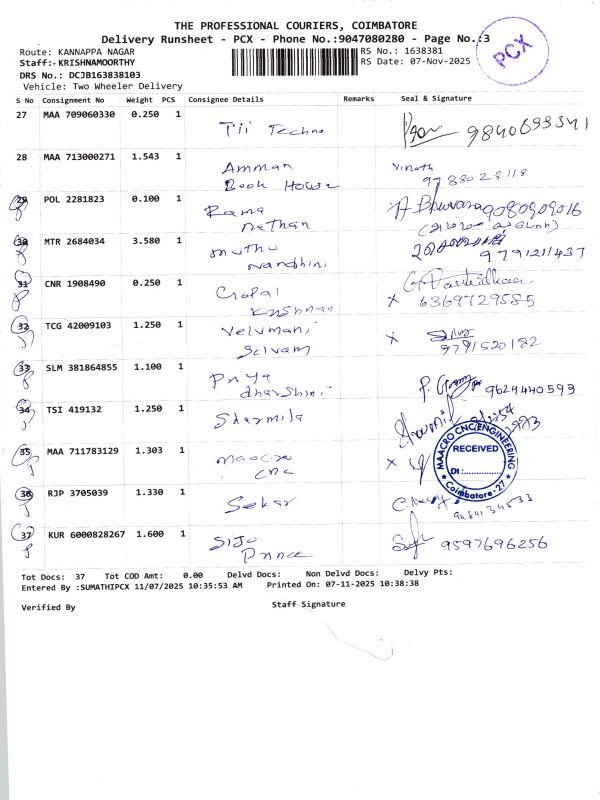 THE PROFESSIONAL COURIERS, COIMBATORE
Delivery Runsheet - PCX - Phone No.:9047080280 - Page No.:3
Route: KANNAPPA NAGAR
RS No.: 1638381
Staff:- KRISHNAMOORTHY
RS Date: 07-Nov-2025
DRS No.: DCJB163838103
Vehicle: Two Wheeler Delivery
PCX
S No Consignment No Weight PCS Consignee Details Remarks Seal & Signature
27 MAA 709060330 0.250 1 Tii Techno
28 MAA 713000271 1.543 1 Amman Vinoth
Book House
29 POL 2281823 0.100 1 Rama 9080909016
Nathan
30 MTR 2684034 3.580 1 muthu
Nandhini 9791211437
31 CNR 1908490 0.250 1 Gopal
Krishnan x 6369729585
32 TCG 42009103 1.250 1 Velumani x
Selvam 9791520182
33 SLM 381864855 1.100 1 Priya
dharshini 9629440593
34 TSI 419132 1.250 1 Sharmila
35 MAA 711783129 1.303 1 maacro x
cnc
MAACRO CNC ENGINEERING
RECEIVED
Dt:
Coimbatore-27
36 RJP 3705039 1.330 1 Sekar
37 KUR 6000828267 1.600 1 Siju 9597696256
Prince
Tot Docs: 37 Tot COD Amt: 0.00 Delvd Docs: Non Delvd Docs: Delvy Pts:
Entered By :SUMATHIPCX 11/07/2025 10:35:53 AM Printed On: 07-11-2025 10:38:38
Verified By Staff Signature